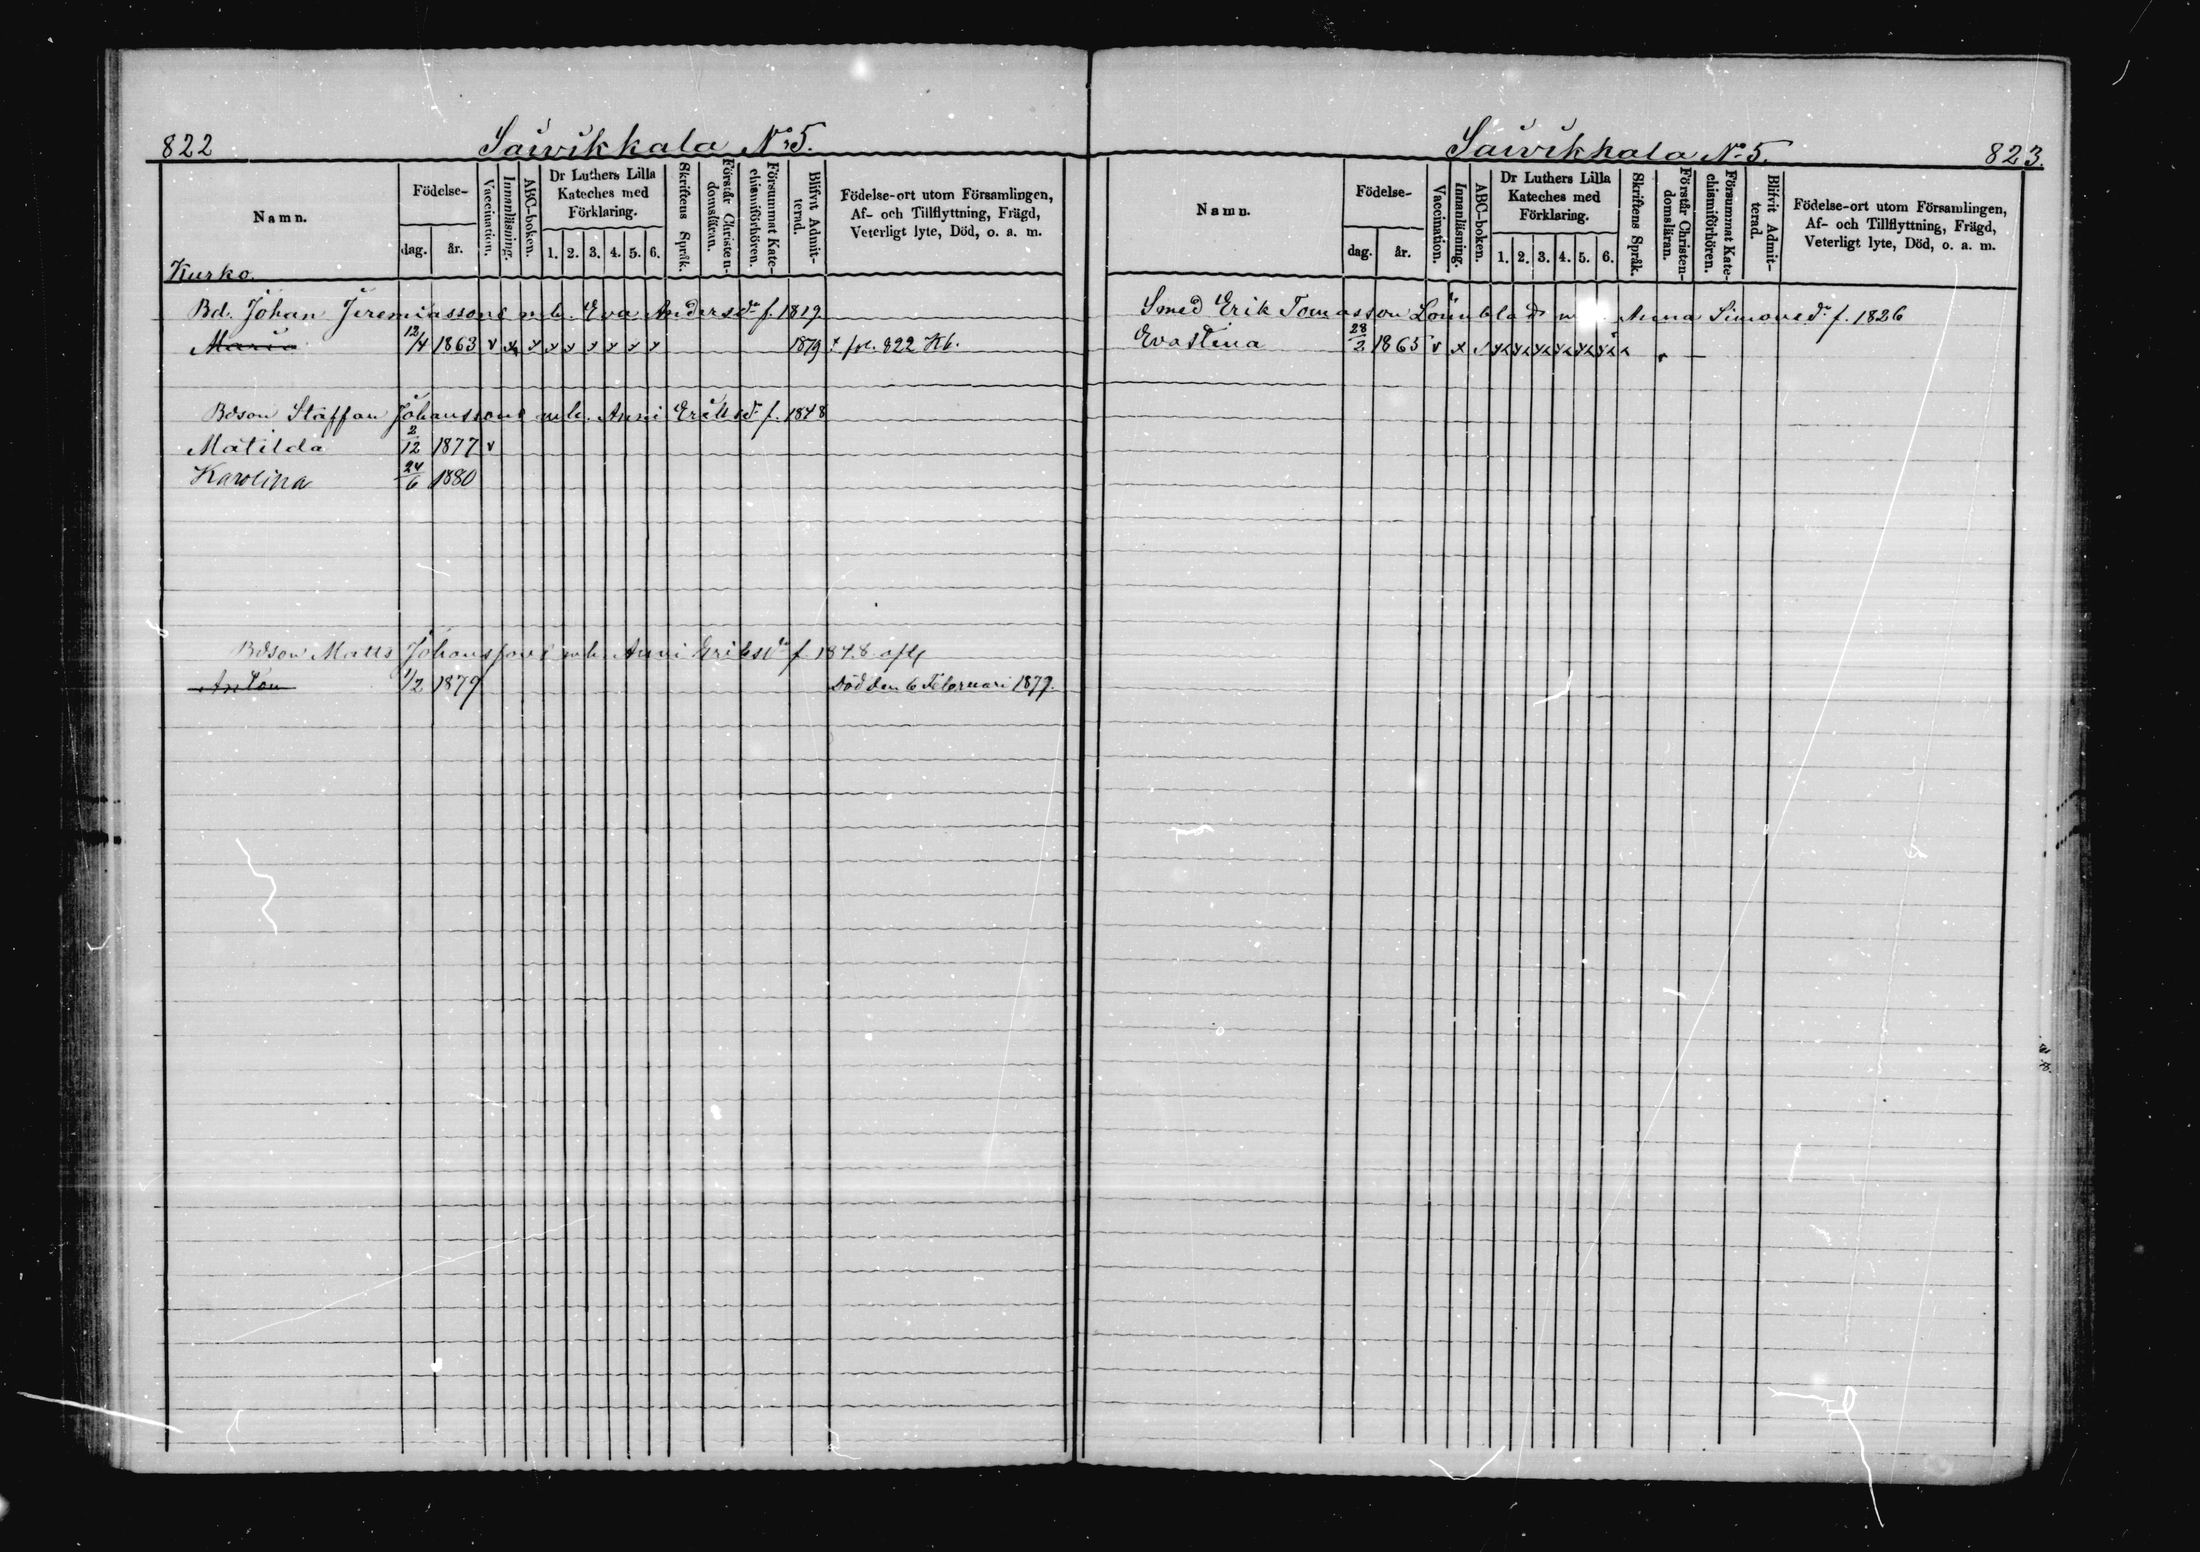 822 Säivikkala No 5.
Namn. Födelse- dag. år. Vaccination. Innanläsning. ABC-boken. Dr Luthers Lilla Kateches med Förklaring. 1. 2. 3. 4. 5. 6. Skriftens Språk. Förstår Christendomsläran. Försummat Katechismiförhören. Blifvit Admitterad. Födelse-ort utom Församlingen, Af- och Tillflyttning, Frägd, Veterligt lyte, Död, o. a. m.
Kurko.
Bd. Johan Jeremiassons m h. Eva Andersdr f. 1819
Maria 12/4 1863 v x x x x x x x x 1879 + fol. 822 Kb.
Bdson Staffan Johanssons m h. Anni Eriksdr f. 1848
Matilda 2/12 1877 v
Karolina 24/6 1880
Bdson Matts Johanssons m h. Anni Eriksdr f. 1848
Anton 1/2 1879 Död den 6 Februari 1879.
Säivikkala No 5. 823.
Namn. Födelse- dag. år. Vaccination. Innanläsning. ABC-boken. Dr Luthers Lilla Kateches med Förklaring. 1. 2. 3. 4. 5. 6. Skriftens Språk. Förstår Christendomsläran. Försummat Katechismiförhören. Blifvit Admitterad. Födelse-ort utom Församlingen, Af- och Tillflyttning, Frägd, Veterligt lyte, Död, o. a. m.
Smed Erik Tomasson Lönnblads Anna Simonsdr f. 1826
Evastina 28/2 1865 v x